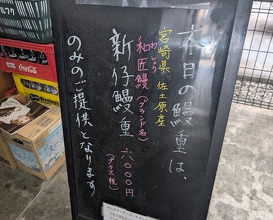 本日の鰻重は、
宮崎県 佐土原産
わしょう
和匠鰻(ブランド名)
新仔鰻重 六〇〇〇円
(プラス税)
のみのご提供となります
Coca-Cola